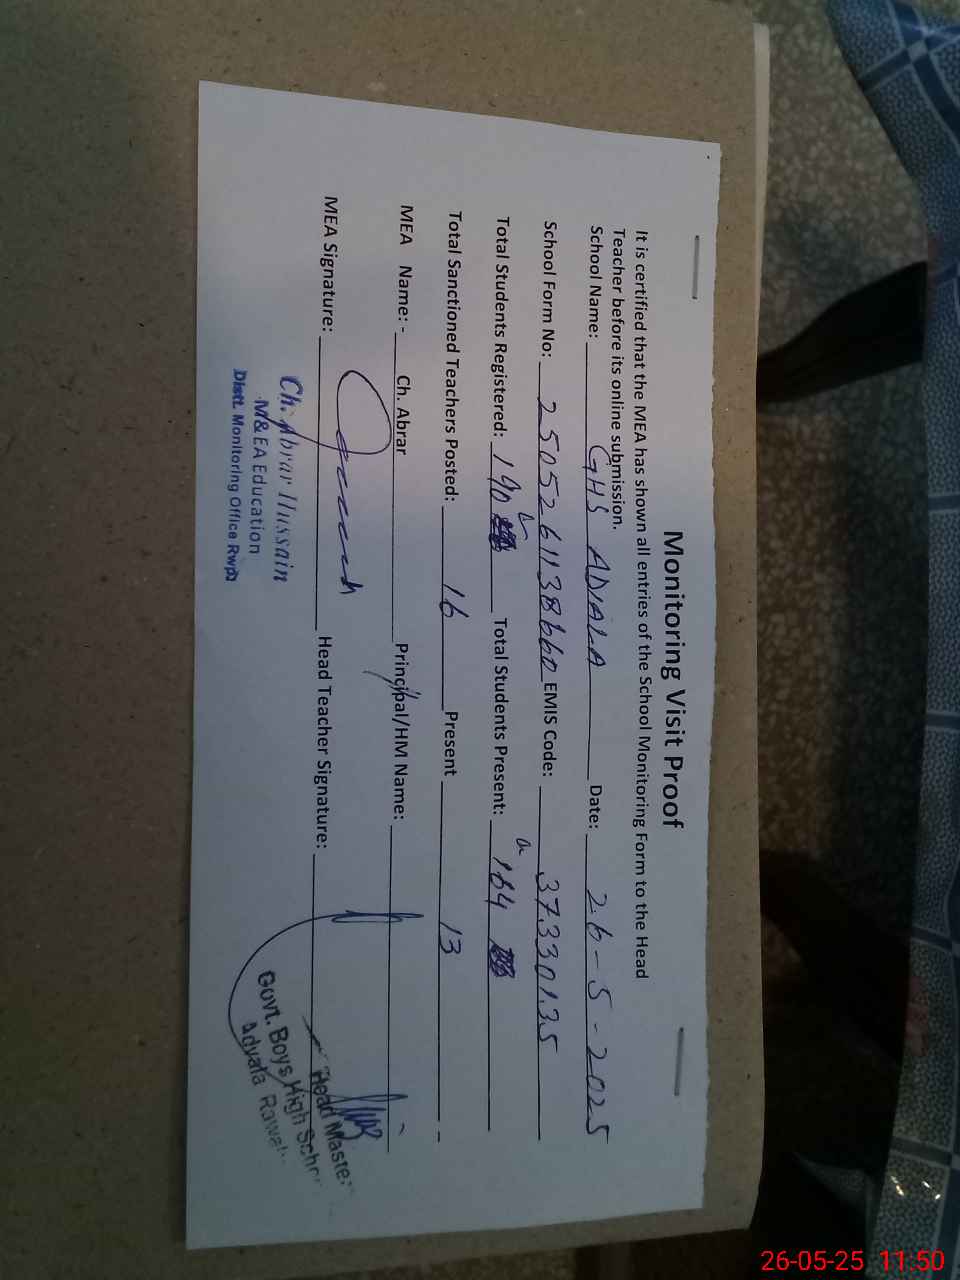 Monitoring Visit Proof
It is certified that the MEA has shown all entries of the School Monitoring Form to the Head
Teacher before its online submission.
School Name: GHS ADIALA Date: 26-5-2025
School Form No: 2505261138660 EMIS Code: 37330135
Total Students Registered: 190 Total Students Present: 164
Total Sanctioned Teachers Posted: 16 Present 13
MEA Name:- Ch. Abrar Principal/HM Name:
MEA Signature: Head Teacher Signature:
Ch. Abrar Hussain
M&EA Education
Distt. Monitoring Office Rwp
Head Master
Govt. Boys High
Adyala
26-05-25 11:50